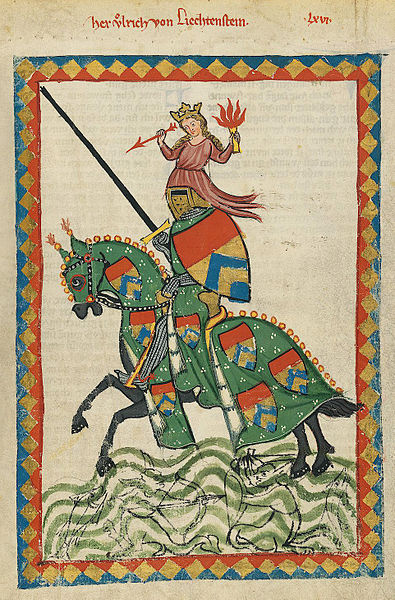 her Ůlrich von Liechtenstein. .lxvi.